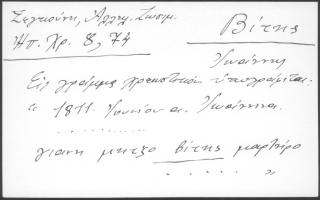 Σεγκούνη, Αλληλ. Ζωσιμ.
Ηπ. Χρ. 8, 74
Βίτης
Ιωάννης
Εις γράμμα χρεωστικόν υπογράφεται.
" 1811. Ιουνίου α. Ιωάννινα.
γιανη μητζο βίτης μαρτηρο
"